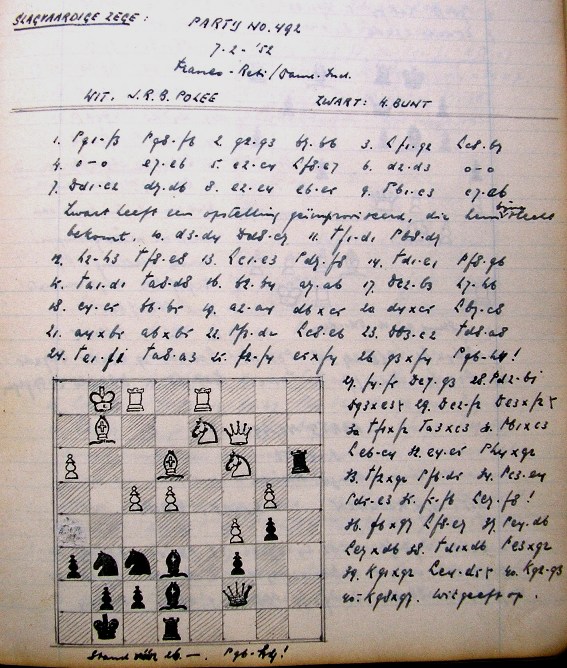 SLAGVAARDIGE ZEGE:
PARTIJ NO. 492
7-2-'52
Franco-Reti/Dame-Ind.
WIT. J.R.B. POLEE ZWART: H. BUNT
1. Pg1-f3 Pg8-f6 2. g2-g3 b7-b6 3. Lf1-g2 Lc8-b7
4. o-o e7-e6 5. c2-c4 Lf8-e7 6. d2-d3 o-o
7. Dd1-c2 d7-d6 8. e2-e4 e6-e5 9. Pb1-c3 c7-c6
Zwart heeft een opstelling geïmproviseerd, die hem bijna slecht
bekomt. 10. d3-d4 Dd8-c7 11. Tf1-d1 Pb8-d7
12. h2-h3 Tf8-e8 13. Lc1-e3 Pd7-f8 14. Td1-e1 Pf8-g6
15. Ta1-d1 Ta8-d8 16. b2-b4 a7-a6 17. Dc2-b3 h7-h6
18. c4-c5 b6-b5 19. a2-a4 d6xc5 20. d4xc5 Lb7-c8
21. a4xb5 a6xb5 22. Pf3-d2 Lc8-e6 23. Db3-c2 Td8-a8
24. Te1-f1 Ta8-a3 25. f2-f4 e5xf4 26. g3xf4 Pg6-h4!
27. f4-f5 Dc7-g3 28. Pd2-b1
Dg3xe3+ 29. Dc2-f2 De3xf2+
30. Tf1xf2 Ta3xc3 31. Pb1xc3
Le6-c4 32. e4-e5 Ph4xg2
33. Tf2xg2 Pf6-d5 34. Pc3-e4
Pd5-e3 35. f5-f6 Le7-f8!
36. f6xg7 Lf8-e7 37. Pe4-d6
Le7xd6 38. Td1xd6 Pe3xg2
39. Kg1xg2 Lc4-d5+ 40. Kg2-g3
40. Kg8xg7. Wit geeft op.
Stand vóór 26. —. Pg6-h4!